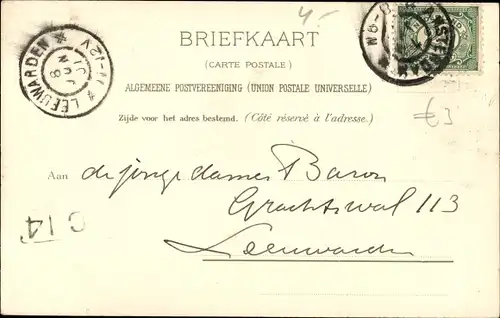 4.-
BRIEFKAART
(CARTE POSTALE)
ALGEMEENE POSTVEREENIGING (UNION POSTALE UNIVERSELLE)
Zijde voor het adres bestemd. (Côté réservé à l'adresse.)
LEEUWARDEN
11-12V
€ 3
Aan de jonge dames Baron
Grachtswal 113
Leeuwarden
C 14